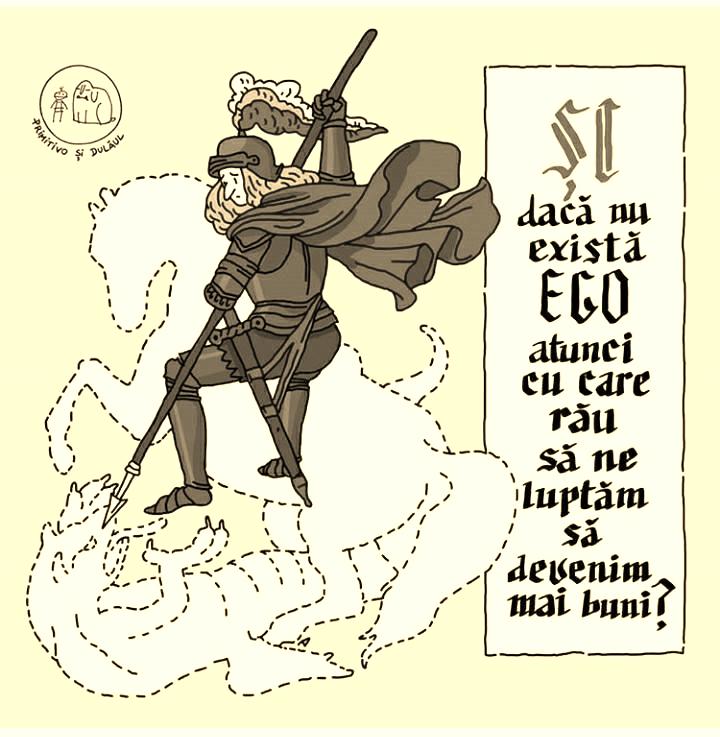 PRIMITIVO ȘI DULĂUL
ȘI
dacă nu
există
EGO
atunci
cu care
rău
să ne
luptăm
să
devenim
mai buni?